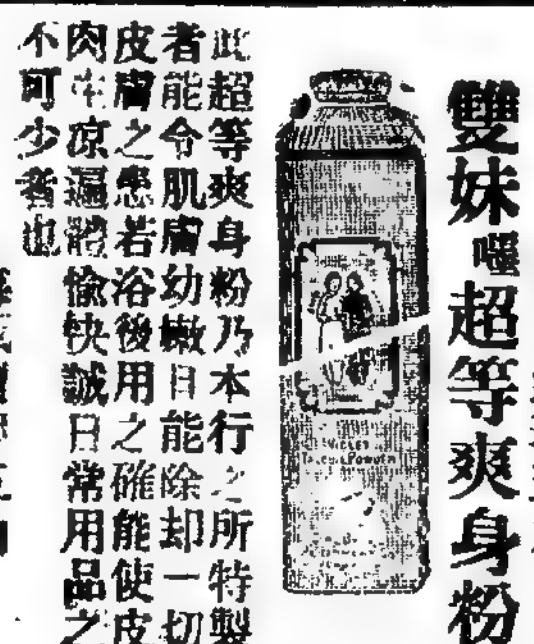 雙妹嚜超等爽身粉
此超等爽身粉乃本行之所特製
者能令肌膚幼嫩且能除却一切
皮膚之患若浴後用之確能使皮
肉生涼遍體愉快誠日常用品之
不可少者也